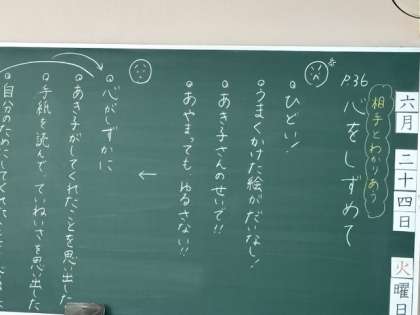 六月二十四日火曜日
相手とわかりあう
P.36 心をしずめて
ひどい!
うまくかけた絵がだいなし!
あき子さんのせいで!!
あやまってもゆるさない!!
←
心がしずかに
あき子がしてくれたことを思い出した
手紙を読んで、ていねいさを思い出した
自分のためにしてくれた